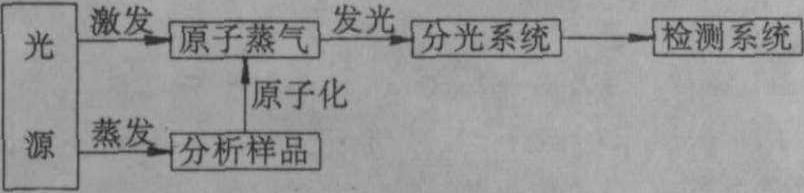 光源
激发
原子蒸气
发光
分光系统
检测系统
原子化
蒸发
分析样品